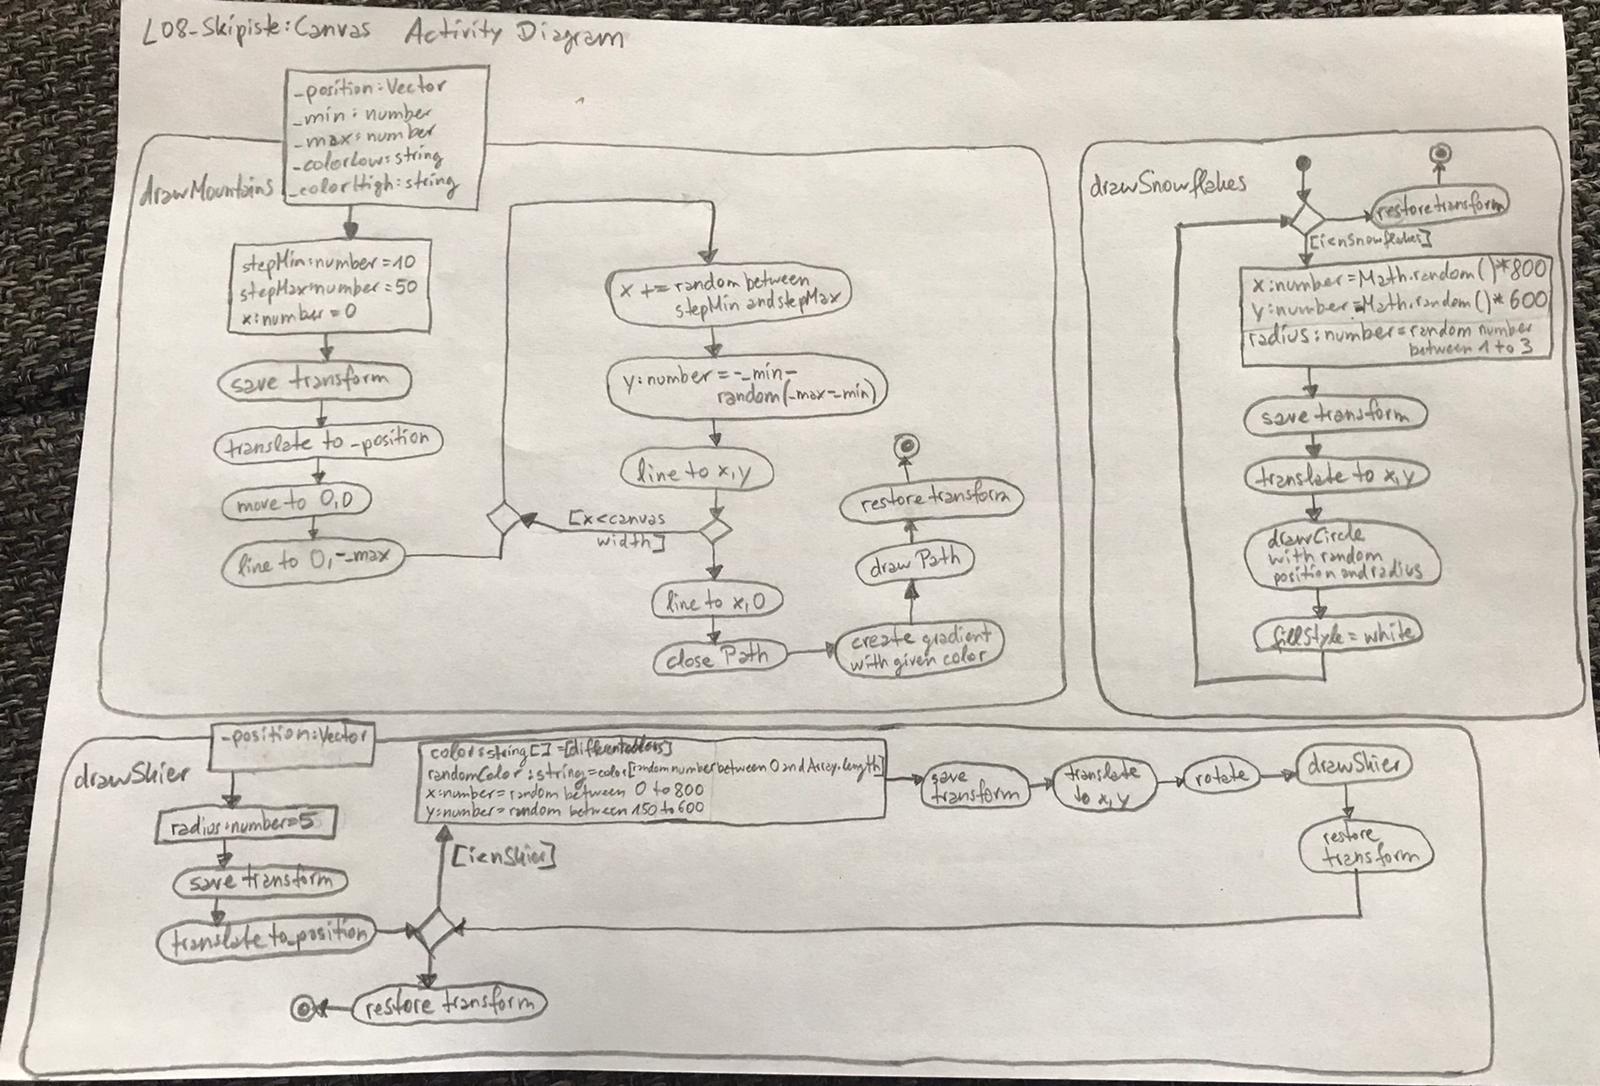 L08-Skipiste:Canvas Activity Diagram
_position:Vector
_min: number
_max: number
_colorLow: string
_colorHigh: string
drawMountains
stepMin:number=10
stepMax:number=50
x:number=0
save transform
translate to _position
move to 0,0
line to 0,-_max
x += random between
stepMin and stepMax
y:number=-_min-
random(_max-_min)
line to x,y
[x<canvas
width]
line to x,0
close Path
create gradient
with given color
draw Path
restore transform
drawSnowflakes
restore transform
[i≤nSnowflakes]
x:number=Math.random()*800
y:number=Math.random()*600
radius:number=random number
between 1 to 3
save transform
translate to x,y
drawCircle
with random
position and radius
fillStyle=white
drawSkier
_position:Vector
radius:number=5
save transform
translate to _position
restore transform
[i≤nSkier]
color:string[]=[different colors]
randomColor:string=color[random number between 0 and Array.length]
x:number=random between 0 to 800
y:number=random between 150 to 600
save
transform
translate
to x,y
rotate
drawSkier
restore
transform